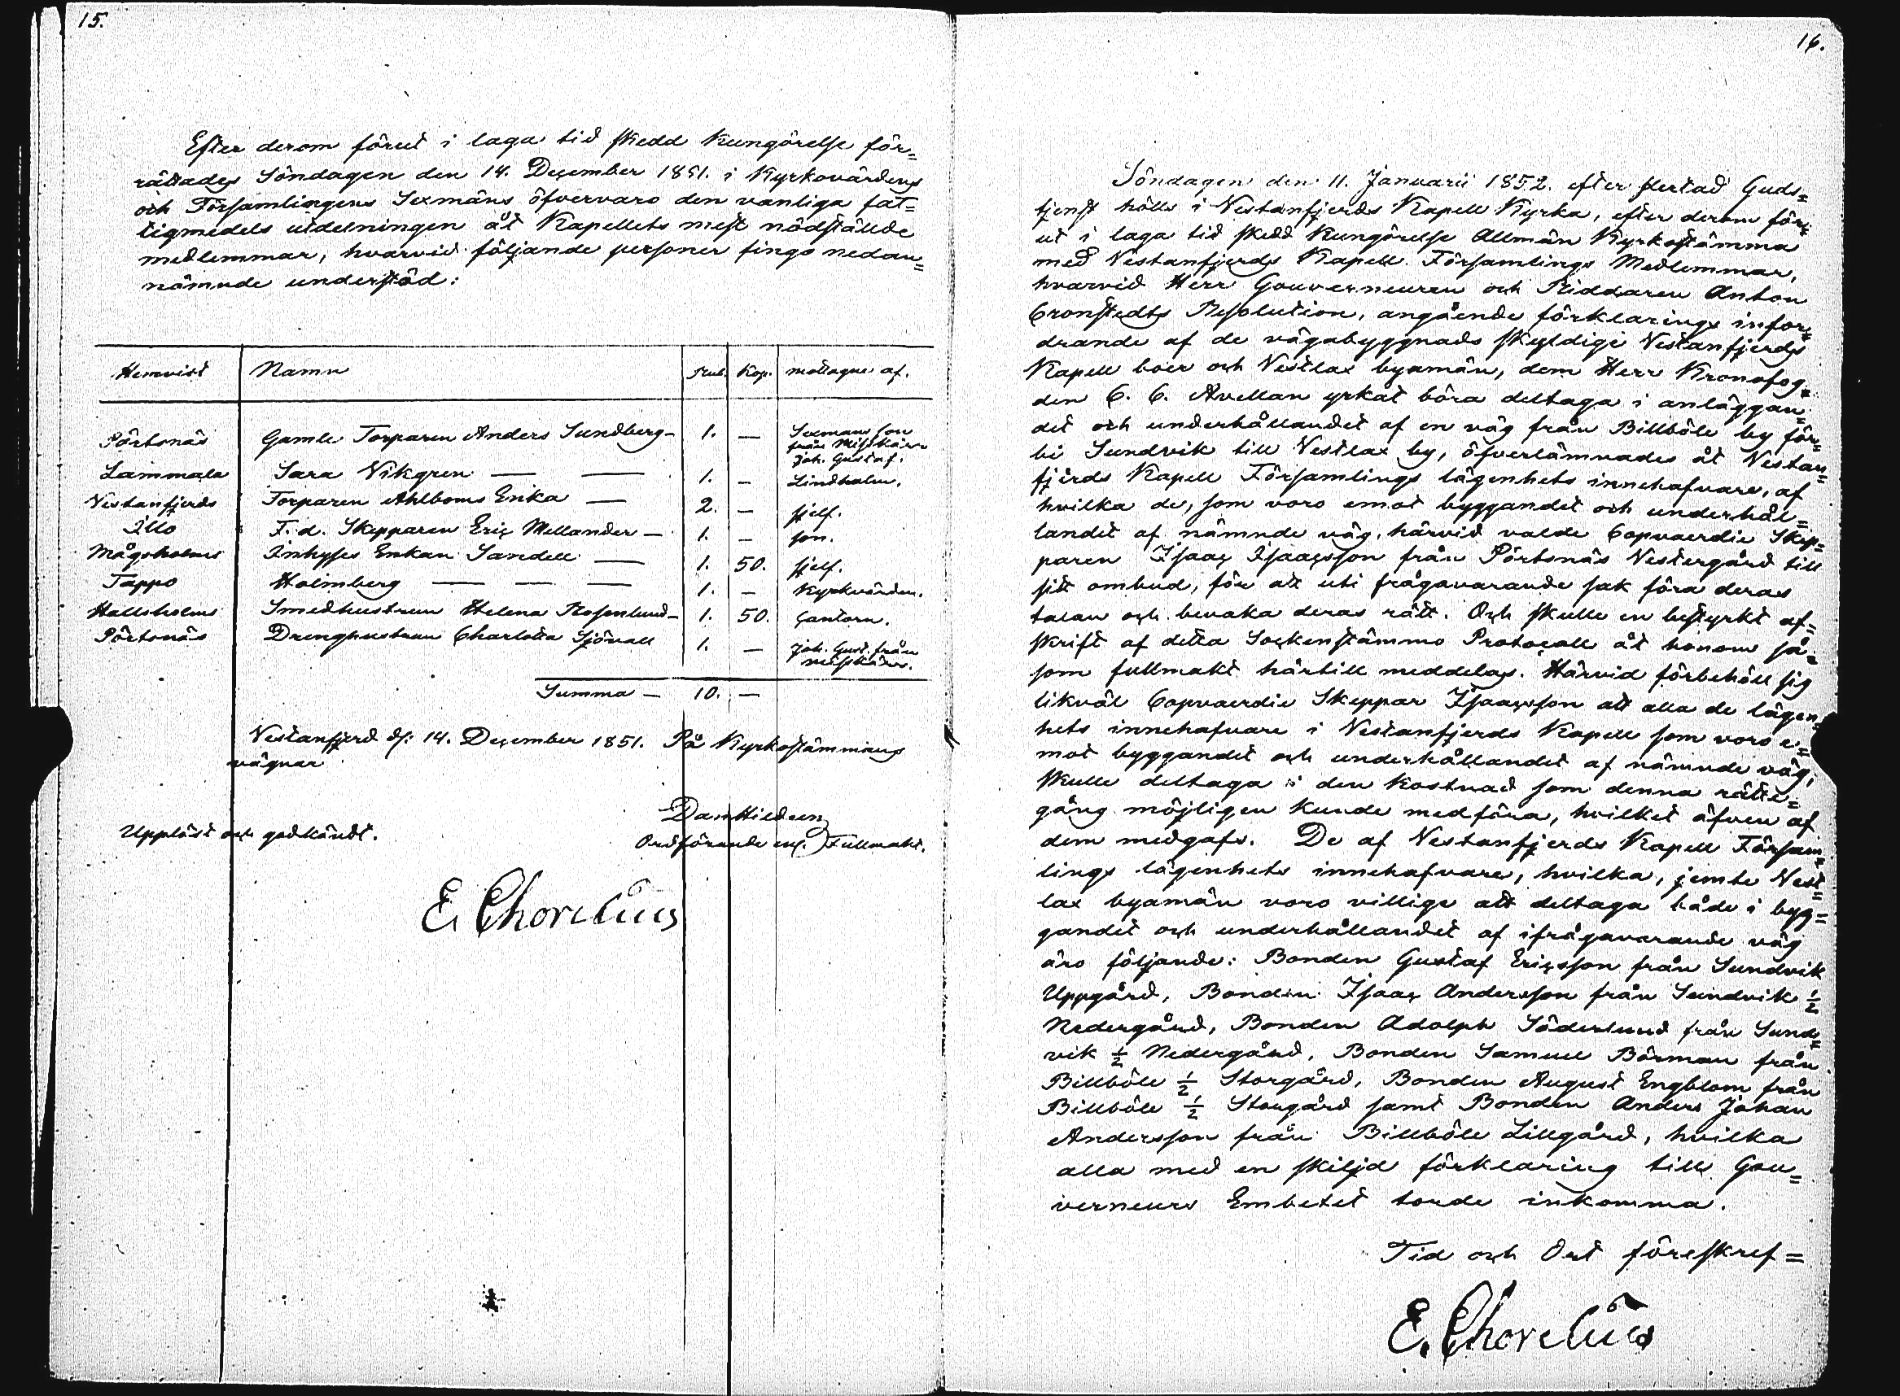 15.
Efter derom förut i laga tid skedd Kungörelse för=
rättades Söndagen den 14. December 1851. i Kyrkovärdens
och Församlingens Sexmäns öfvervaro den vanliga fat=
tigmedels utdelningen åt Kapellets mest nödstälde
medlemmar, hvarvid följande personer fingo nedan=
nämnde understöd:
Hemvist Namn Rub. Kop. mottagne af.
Pörtsnäs Gamle Torparen Anders Sundberg – 1. — Sexmans son
från Misskärr
Joh. Gustaf.
Lammala Sara Vikgren — — 1. — Lindholm.
Vestanfjerds Torparen Ahlboms Enka — 2. — sjelf.
Illo F. d. Skepparen Eric Mellander — 1. — son.
Mågsholmes Inhyses Enkan Sandell — 1. 50. sjelf.
Tappo Holmberg — — — 1. — Kyrkvärden.
Hallsholms Smedhustrun Helena Rosenlund – 1. 50. Cantorn.
Pörtsnäs Drenghustrun Charlotta Sjövall 1. — Joh. Gust. från
Misskärr.
Summa — 10. —
Vestanfjerd d. 14. December 1851. På Kyrkostämmans
vägnar
Dan Hildeen
Ordförande enl. Fullmakt.
Uppläst och godkändt.
E. Chorelius
16.
Söndagen den 11. Januarii 1852. efter slutad Guds=
tjenst hölls i Vestanfjerds Kapell Kyrka, efter derom för=
ut i laga tid skedd Kungörelse Allmän Kyrkostämma
med Vestanfjerds Kapell Församlings Medlemmar,
hvarvid Herr Gouverneuren och Riddaren Anton
Cronstedts Resolution, angående förklarings infor=
drande af de vägabyggnads skyldige Vestanfjerds
Kapell boer och Vestlax byamän, dem Herr Kronofog=
den C. C. Avellan yrkat böra deltaga i anläggan=
det och underhållandet af en väg från Billböle by för=
bi Sundvik till Vestlax by, öfverlämnades åt Vestan=
fjerds Kapell Församlings lägenhets innehafvare, af
hvilka de, som voro emot byggandet och underhål=
landet af nämnde väg, härvid valde Copvaerdie Skep=
paren Isaac Isaacsson från Pörtsnäs Vestergård till
sitt ombud, för att uti frågavarande sak föra deras
talan och bevaka deras rätt. Och skulle en bestyrkt af=
skrift af detta Sockenstämmo Protocoll åt honom så=
som fullmakt härtill meddelas. Härvid förbehöll sig
likväl Copvaerdie Skeppar Isaacsson att alla de lägen=
hets innehafvare i Vestanfjerds Kapell som voro e=
mot byggandet och underhållandet af nämnde väg,
skulle deltaga i den kostnad som denna rätte=
gång möjligen kunde medföra, hvilket äfven af
dem medgafs. De af Vestanfjerds Kapell Försam=
lings lägenhets innehafvare, hvilka, jemte Vest=
lax byamän voro villige att deltaga både i byg=
gandet och underhållandet af ifrågavarande väg
äro följande: Bonden Gustaf Ericsson från Sundvik
Uppgård, Bonden Isaac Andersson från Sundvik ½
Nedergård, Bonden Adolph Söderlund från Sund=
vik ½ Nedergård, Bonden Samuel Börman från
Billböle ½ Storgård, Bonden August Engblom från
Billböle ½ Storgård samt Bonden Anders Johan
Andersson från Billböle Lillgård, hvilka
alla med en skiljd förklaring till Gou=
verneurs Embetet torde inkomma.
Tid och Ort föreskref=
E. Chorelius